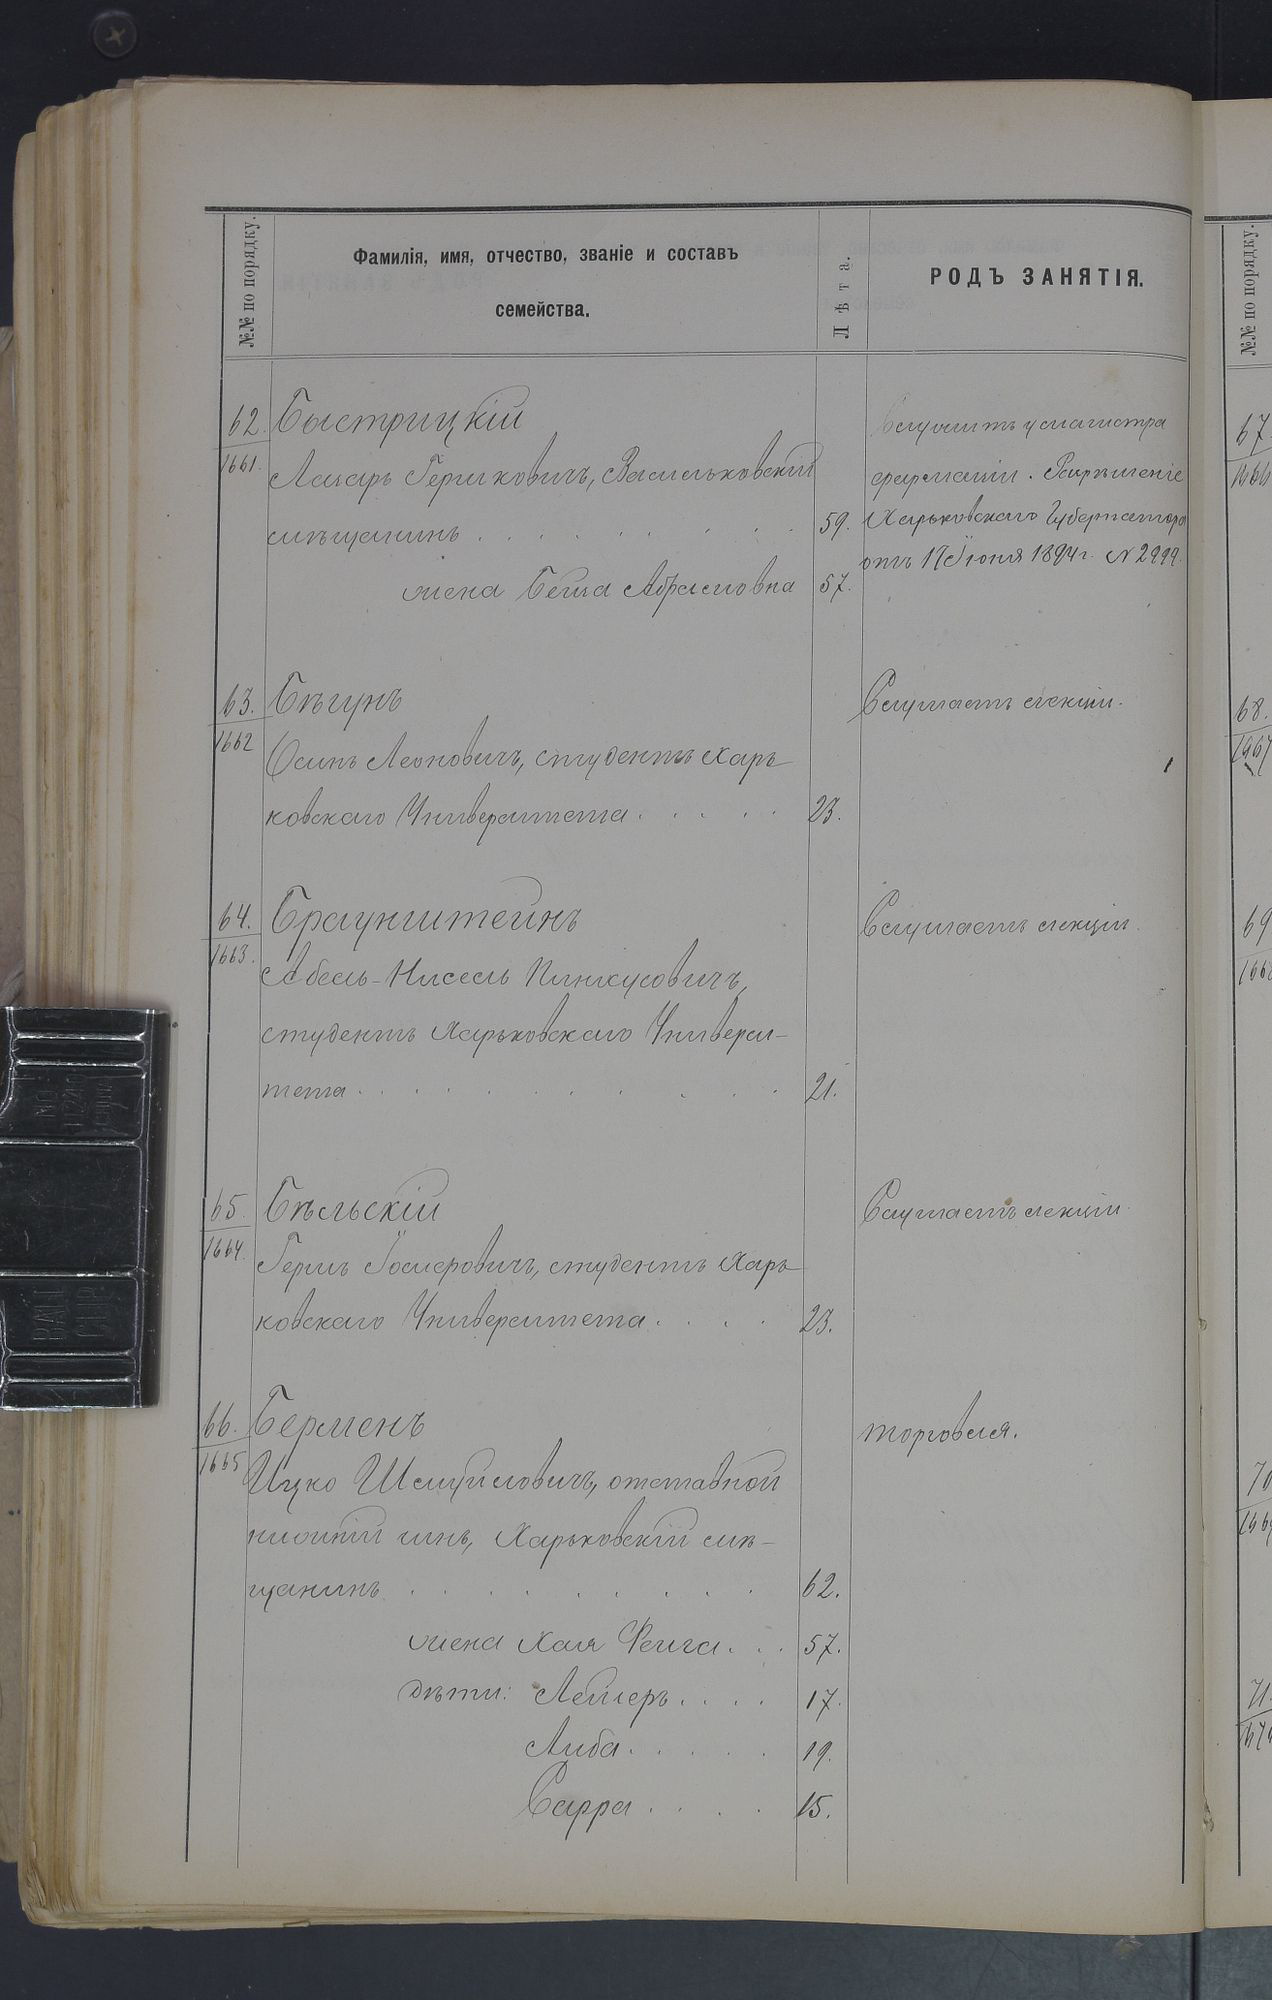 №№ по порядку.
Фамилія, имя, отчество, званіе и составъ
семейства.
Лѣта.
РОДЪ ЗАНЯТІЯ.
62. Быстрицкій
1661. Лазарь Гершковичъ, Васильковскій
мѣщанинъ 59.
жена Бейла Абрамовна 57.
Служитъ у магистра
фармаціи. Разрѣшеніе
Харьковскаго Губернатора
отъ 17 Іюня 1894 г. № 2999.
63. Бѣгунъ
Слушаетъ лекціи.
1662 Осипъ Леоновичъ, студентъ Харь
ковскаго Университета 23.
64. Браунштейнъ
Слушаетъ лекціи.
1663. Абель-Нисель Пинкусовичъ,
студентъ Харьковскаго Универси-
тета 21.
65. Бѣльскій
Слушаетъ лекціи.
1664. Гершъ студентъ Харь
ковскаго Университета 23.
66. Берменъ
торговля.
1665 Ицко Шмуйловичъ, отставной
нижній чинъ, Харьковскій мѣ-
щанинъ 62.
жена Хая Фейга 57.
дѣти: Лейзеръ 17.
Либа 19.
Сарра 15.
№№ по порядку.
67.
68.
69
70
71.